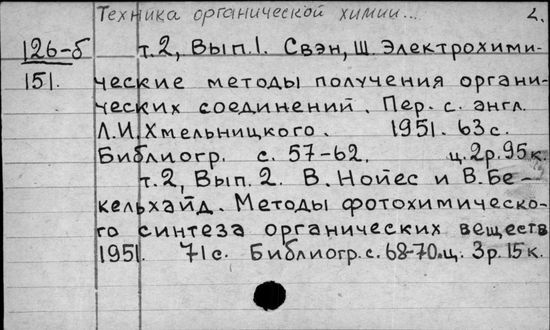 Техника органической химии... 2.
126-б т.2, Вып.1. Свэн, Ш. Электрохими-
151. ческие методы получения органи-
ческих соединений. Пер. с. англ.
Л.И. Хмельницкого. 1951. 63 с.
Библиогр. с. 57-62. ц. 2р. 95 к.
т.2, Вып. 2. В. Нойес и В. Бе-
кельхайд. Методы фотохимическо-
го синтеза органических веществ
1951. 71 с. Библиогр. с. 68-70. ц. 3р. 15 к.